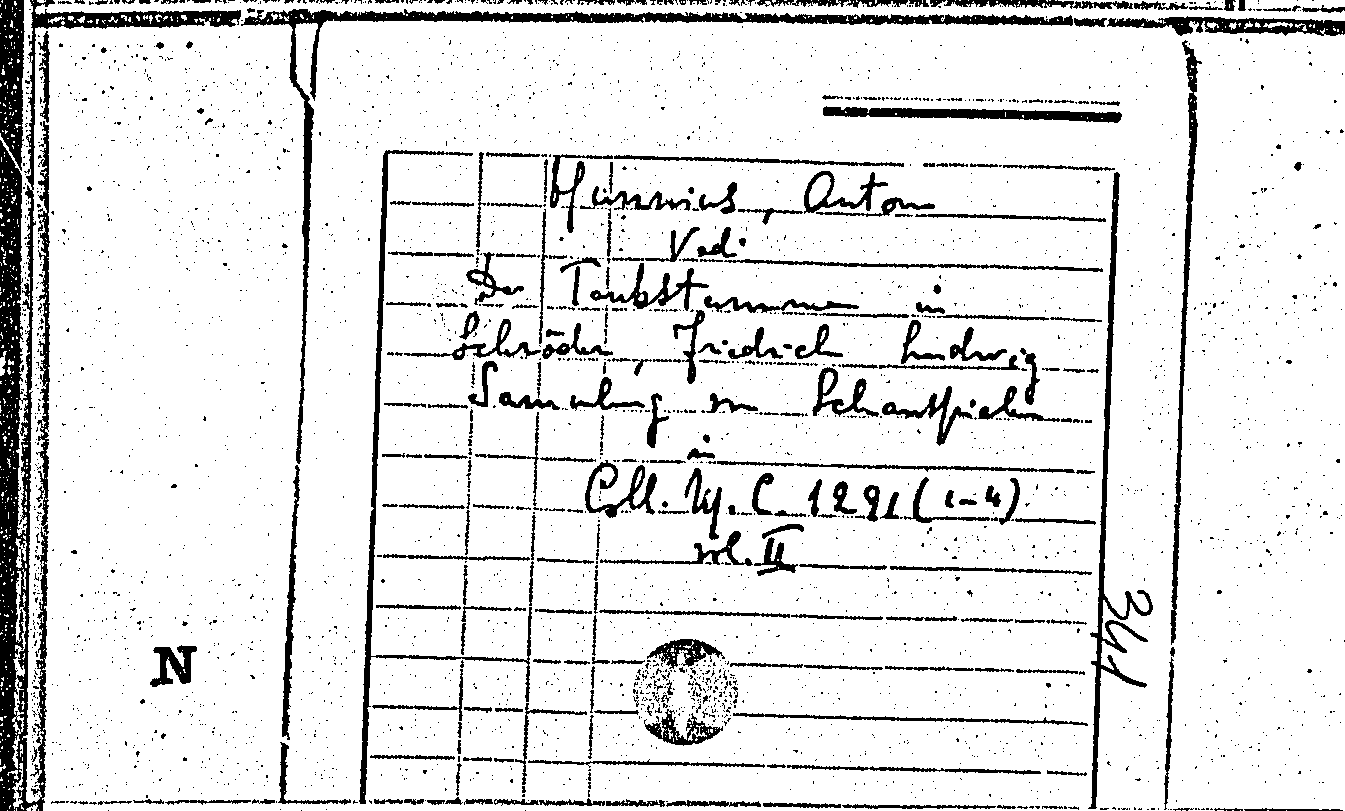 Hunnius, Anton
Ved:
Der Taubstumme in
Schröder, Friedrich Ludwig
Sammlung von Schauspielen
in
Coll. Ug. C. 1291 (1-4)
vol. II
341
N